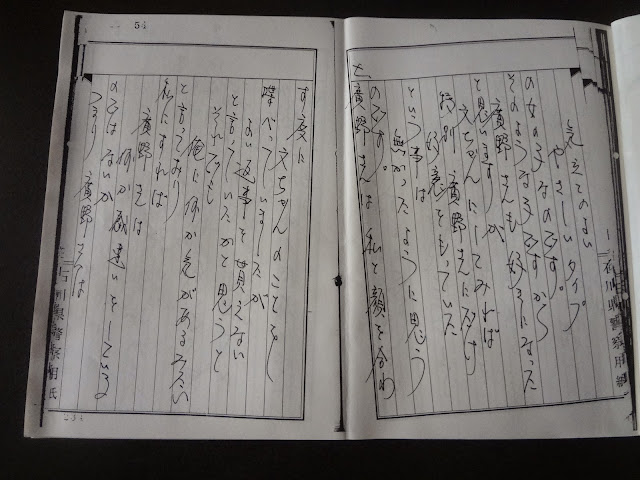 気立てのよい
やさしいタイプ
の女の子なのです。
そのような子ですから
廣野さんも好きになった
と思いますが
文ちゃんにしてみれば
特別廣野さんに対す
好意をもっていた
という事は
無かったように思う
のです。
廣野さんは私と顔を合わ
石川県警察用紙
54
す度に
文ちゃんのことを
喋べっていましたが
よい返事を貰えない
と言っていたかと思うと
それでも
俺に何か気があるみたい
と言ってみたり
私にすれば
廣野さんは
何か勘違いをしている
のではないか
つまり廣野さんは
石川県警察用紙